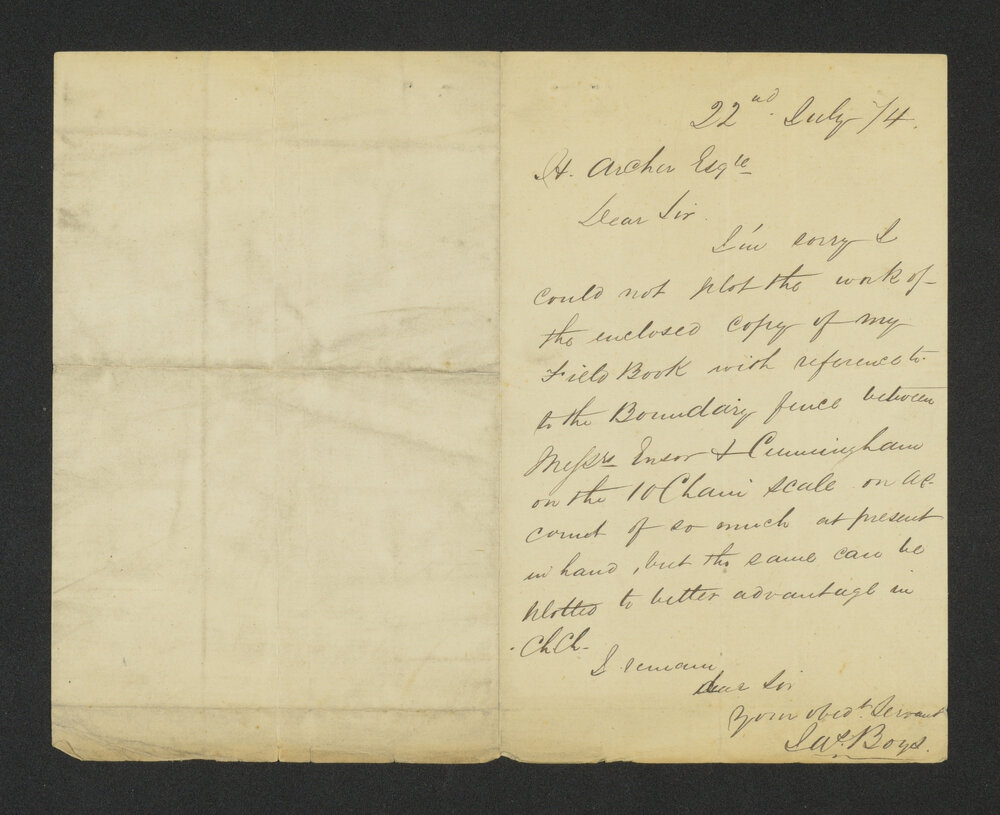 22nd July /74.
H. Archer Esqre
Dear Sir.
I'm sorry I
could not plot the work of
the enclosed copy of my
Field Book with reference to
to the Boundary fence between
Messrs Ensor & Cunningham
on the 10 Chain scale on ac-
count of so much at present
in hand, but the same can be
plotted to better advantage in
ChCh-
I remain
dear Sir
Your obedt. Servant
Boyd.